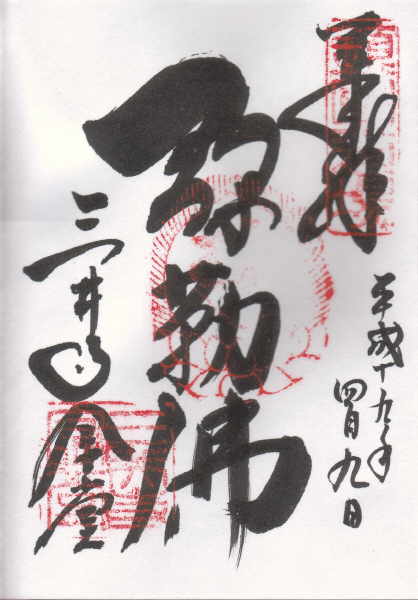 奉拝
平成十九年
四月九日
彌勒佛
三井寺
金堂